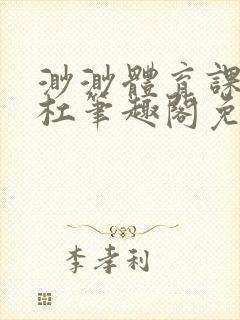 渺渺體育課
杜筆趣閣免
李孝利